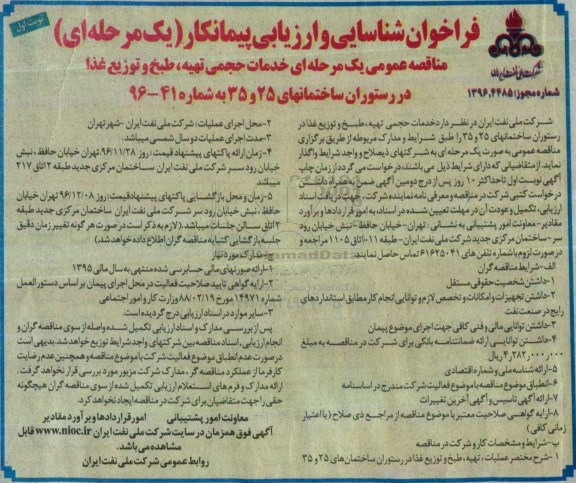 نوبت اول
فراخوان شناسایی و ارزیابی پیمانکار (یک مرحله ای)
مناقصه عمومی یک مرحله ای خدمات حجمی تهیه، طبخ و توزیع غذا
در رستوران ساختمانهای ۲۵ و ۳۵ به شماره ۴۱-۹۶
شرکت ملی نفت ایران
شماره مجوز: ۱۳۹۶,۴۴۸۵
شرکت ملی نفت ایران در نظر دارد خدمات حجمی تهیه، طبخ و توزیع غذا در
رستوران ساختمانهای ۲۵ و ۳۵ را طبق شرایط و مدارک مربوطه از طریق برگزاری
مناقصه عمومی به صورت یک مرحله ای به شرکتهای ذیصلاح و واجد شرایط واگذار
نماید. از متقاضیانی که دارای شرایط ذیل می باشند، درخواست می گردد از زمان چاپ
آگهی نوبت اول تا حداکثر ۱۰ روز پس از درج دومین آگهی ضمن به همراه داشتن
درخواست کتبی شرکت در مناقصه و معرفی نامه نماینده شرکت، جهت دریافت اسناد
ارزیابی، تکمیل و عودت آن در مهلت تعیین شده در اسناد، به امور قراردادها و برآورد
مقادیر- معاونت امور پشتیبانی به نشانی: تهران- خیابان حافظ- نبش خیابان رود
سر- ساختمان مرکزی جدید شرکت ملی نفت ایران- طبقه ۱۱- اتاق ۱۱۰۵ مراجعه و
در صورت لزوم با شماره تلفن های ۶۱۶۲۵۰۴۱ تماس حاصل نمایند.
الف- شرایط مناقصه گران
۱- داشتن شخصیت حقوقی مستقل
۲- داشتن تجهیزات و امکانات و تخصص لازم و توانایی انجام کار مطابق استانداردهای
رایج در صنعت نفت
۳- داشتن توانایی مالی و فنی کافی جهت اجرای موضوع پیمان
۴- داشتن توانایی ارائه ضمانتنامه بانکی برای شرکت در مناقصه به مبلغ
۴,۲۸۲,۰۰۰,۰۰۰ ریال
۵- ارائه شناسه ملی و شماره اقتصادی
۶- انطباق موضوع مناقصه با موضوع فعالیت شرکت مندرج در اساسنامه
۷- ارائه آگهی تاسیس و آگهی آخرین تغییرات
۸- ارایه گواهی صلاحیت معتبر با موضوع مناقصه از مراجع ذی صلاح (با اعتبار
زمانی کافی)
ب- شرایط و مشخصات کار و شرکت در مناقصه
۱- شرح مختصر عملیات: تهیه، طبخ و توزیع غذا در رستوران ساختمان های ۲۵ و ۳۵
۲- محل اجرای عملیات: شرکت ملی نفت ایران - شهر تهران
۳- مدت اجرای عملیات دو سال شمسی میباشد.
۴- زمان ارائه پاکتهای پیشنهاد قیمت: روز ۹۶/۱۱/۲۸ تهران خیابان حافظ، نبش
خیابان رود سر شرکت ملی نفت ایران ساختمان مرکزی جدید طبقه ۲ اتاق ۲۱۷
میباشد
۵- زمان و محل بازگشایی پاکتهای پیشنهاد قیمت: روز ۹۶/۱۲/۰۸ تهران خیابان
حافظ، نبش خیابان رود سر شرکت ملی نفت ایران ساختمان مرکزی جدید طبقه
۲ اتاق سالن جلسات میباشد. (لازم به ذکر است در صورت هر گونه تغییر زمان دقیق
جلسه بازگشایی کتبا به مناقصه گران اطلاع داده خواهد شد.)
ج- مدارک مورد نیاز
۱- ارائه صورتهای مالی حسابرسی شده منتهی به سال مالی ۱۳۹۵
۲- ارایه گواهی تایید صلاحیت فعالیت در محل اجرای پیمان بر اساس دستورالعمل
شماره ۱۴۹۷۱ مورخ ۸۸/۰۲/۱۹ وزارت کار و امور اجتماعی
۳- سایر موارد در اسناد ارزیابی درج گردیده است.
پس از بررسی مدارک و اسناد ارزیابی تکمیل شده واصله از سوی مناقصه گران و
انجام ارزیابی، اسناد مناقصه بین شرکتهای واجد شرایط توزیع خواهد شد. بدیهی است
در صورت عدم انطباق موضوع فعالیت شرکت با موضوع مناقصه و همچنین عدم رضایت
کارفرما از عملکرد مناقصه گر، مدارک شرکت مزبور مورد بررسی قرار نخواهد گرفت.
ارائه مدارک و فرم های استعلام ارزیابی تکمیل شده از سوی مناقصه گران هیچگونه
حقی را جهت متقاضیان برای شرکت در مناقصه ایجاد نخواهد کرد.
معاونت امور پشتیبانی امور قراردادها و برآورد مقادیر
آگهی فوق همزمان در سایت شرکت ملی نفت ایران www.nioc.ir قابل
مشاهده می باشد.
روابط عمومی شرکت ملی نفت ایران